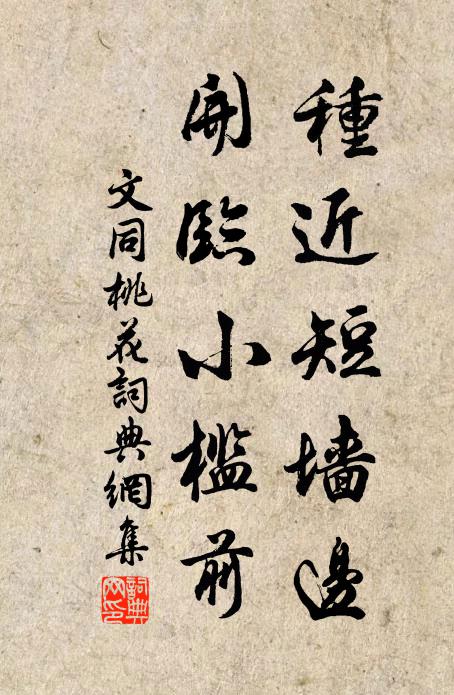 種近短墻邊
開臨小檻前
文同桃花詞典網集
詞典網印